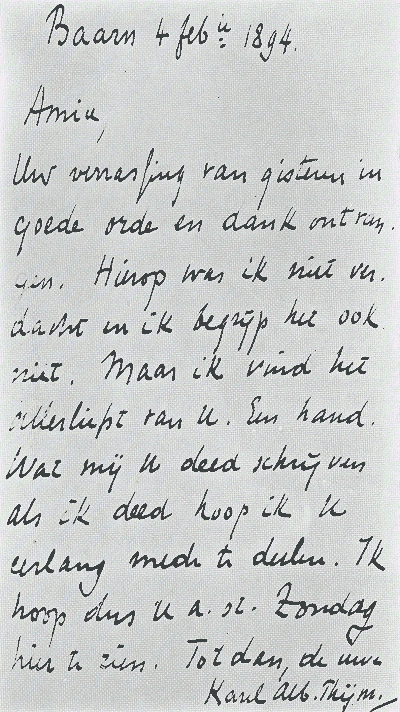 Baarn 4 feb ii: 1894.
Amice,
Uw verrassing van gisteren in
goede orde en dank ontvan.
gen. Hierop was ik niet ver.
dacht en ik begrijp het ook
niet. Maar ik vind het
allerliefst van U. Een hand.
Wat mij U deed schrijven
als ik deed hoop ik U
eerlang mede te deelen. Ik
hoop dus U a. st. Zondag
hier te zien. Tot dan, de uwe
Karel Alb. Thijm.